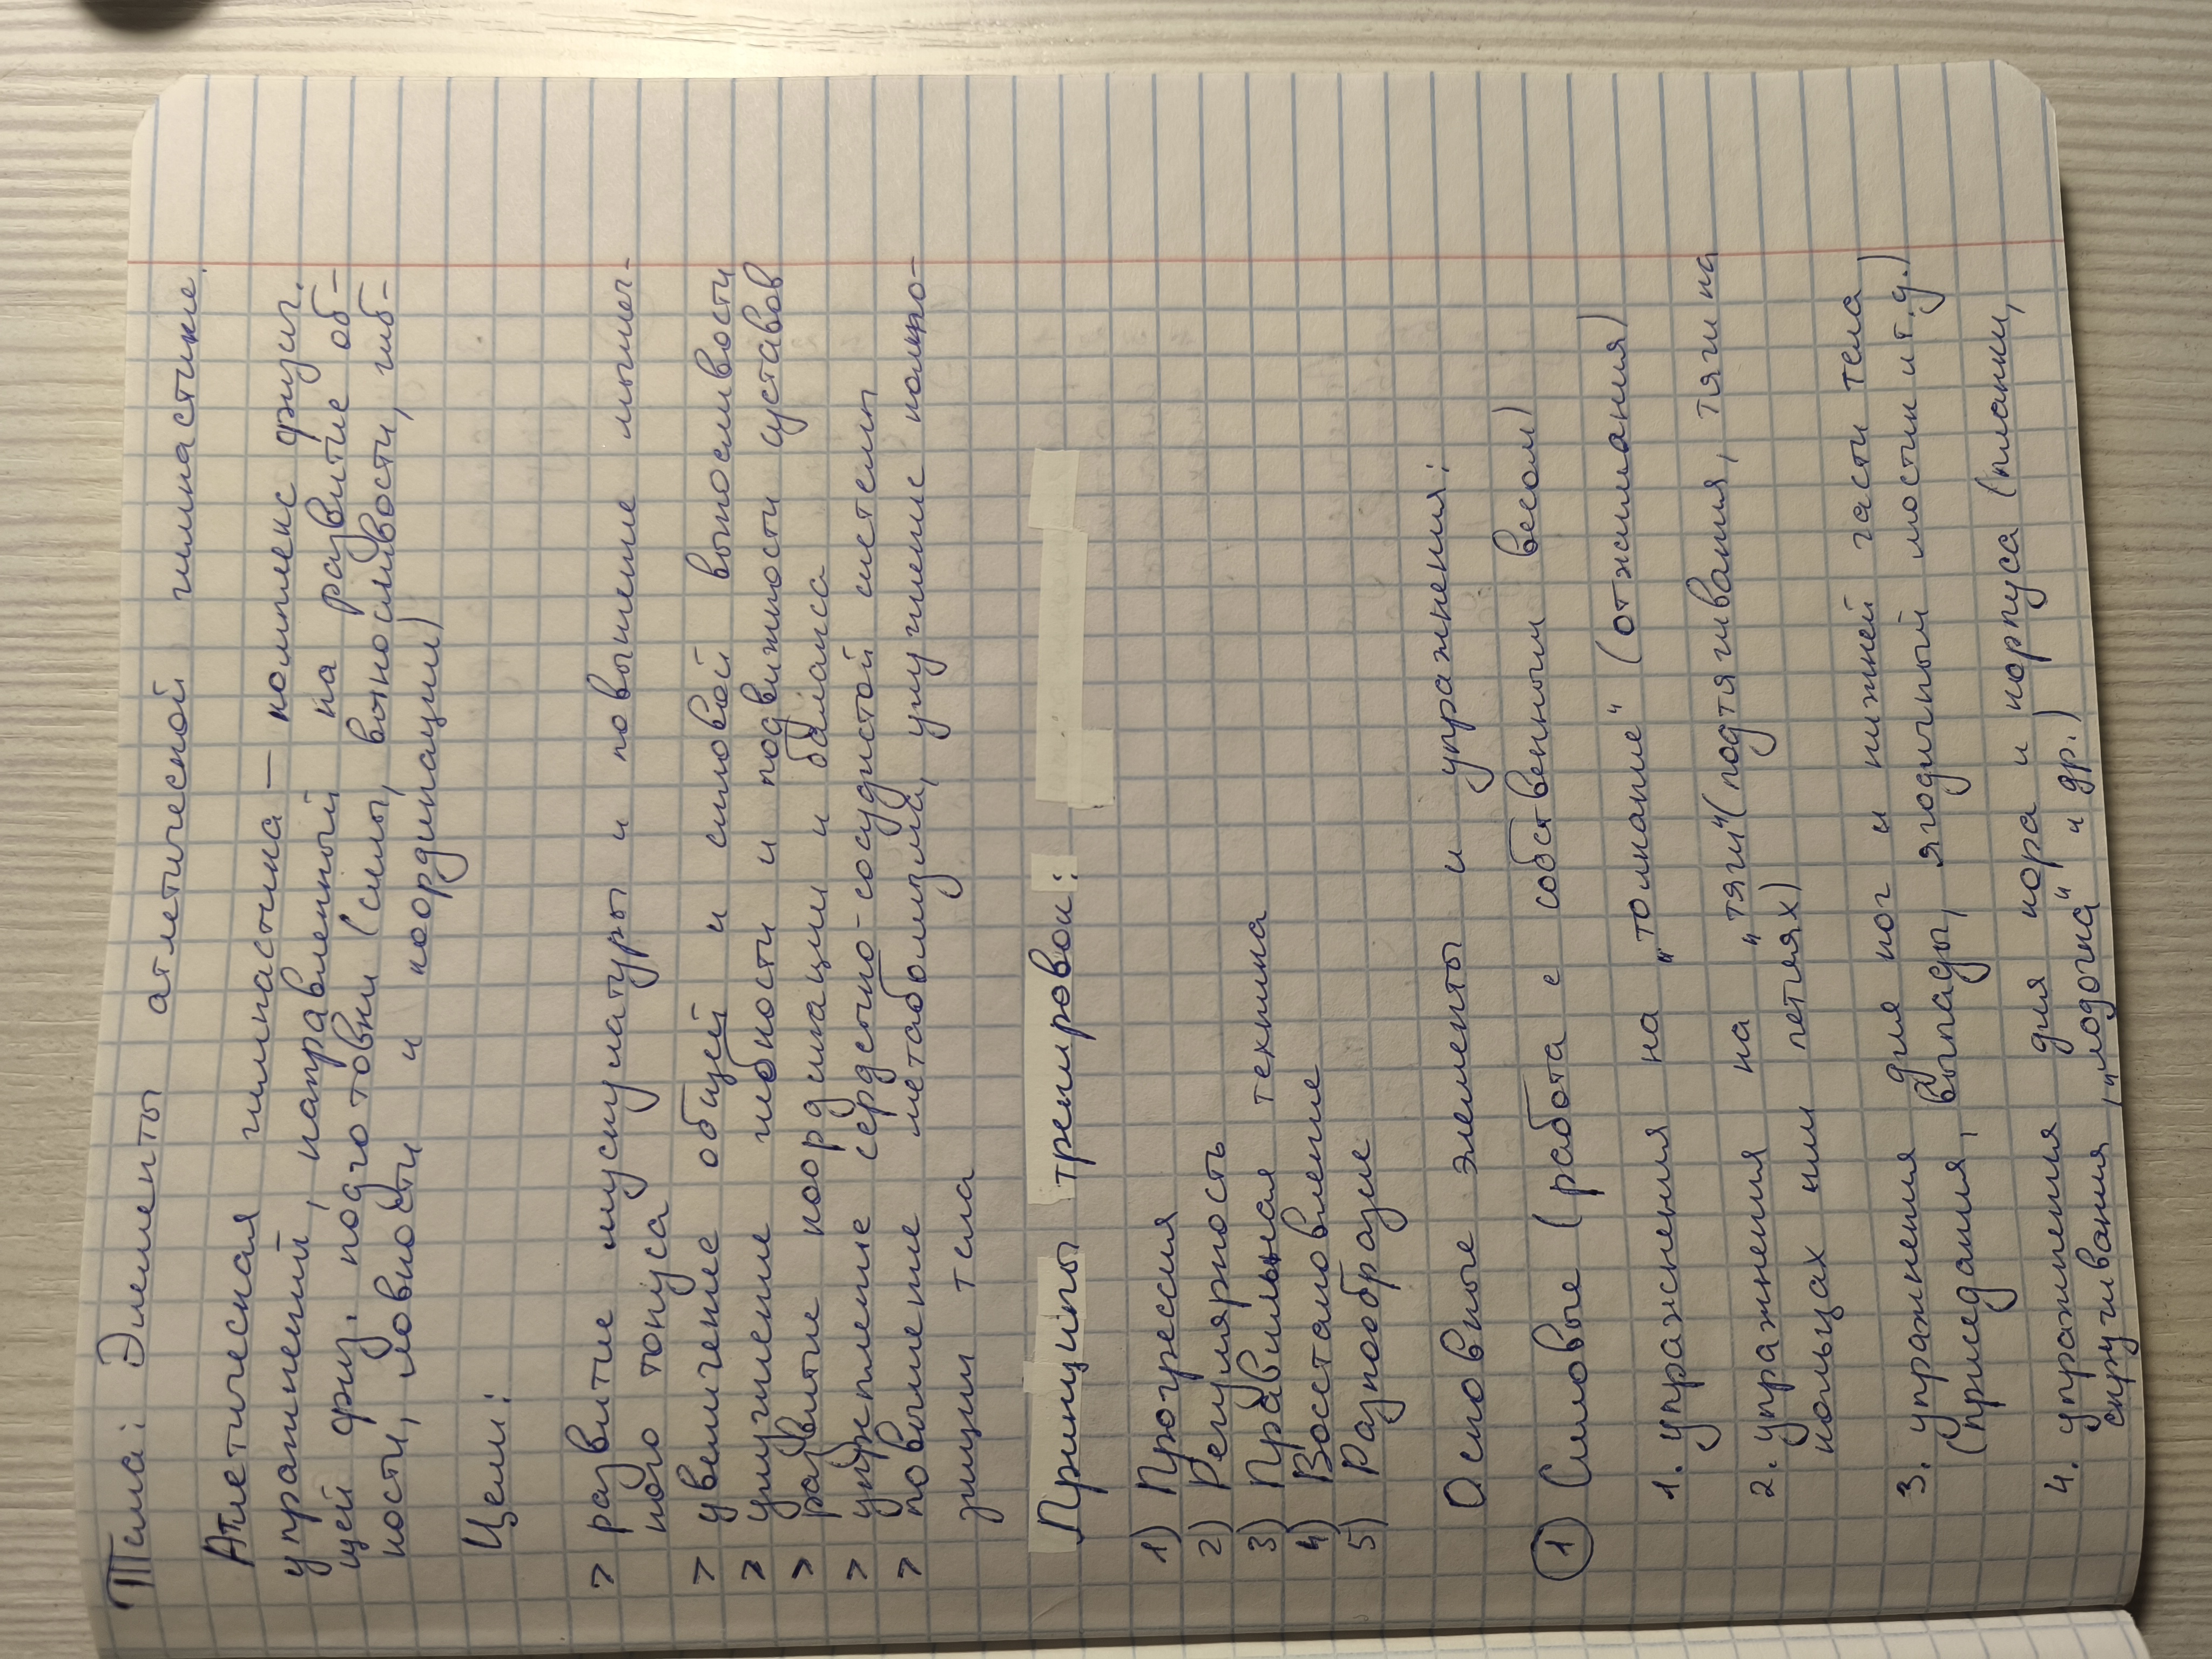 Тема: Элементы атлетической гимнастике.
Атлетическая гимнастика — комплекс физич.
упражнений, направленный на развитие об-
щей физ. подготовки (силы, выносливости, гиб-
кости, ловкости и координации)
Цели:
> развитие мускулатуры и повышение мышеч-
ного тонуса
> увеличение общей и силовой выносливости
> улучшение гибкости и подвижности суставов
> развитие координации и баланса
> укрепление сердечно-сосудистой системы
> повышение метаболизма, улучшение компо-
зиции тела
Принципы тренировок:
1) Прогрессия
2) Регулярность
3) Правильная техника
4) Восстановление
5) Разнообразие
Основные элементы и упражнения:
① Силовые (работа с собственным весом)
1. упражнения на "толкание" (отжимания)
2. упражнения на "тяги" (подтягивания, тяги на
кольцах или петлях)
3. упражнения для ног и нижней части тела
(приседания, выпады, ягодичный мостик и т.д.)
4. упражнения для кора и корпуса (планки,
скручивания, "лодочка" и др.)